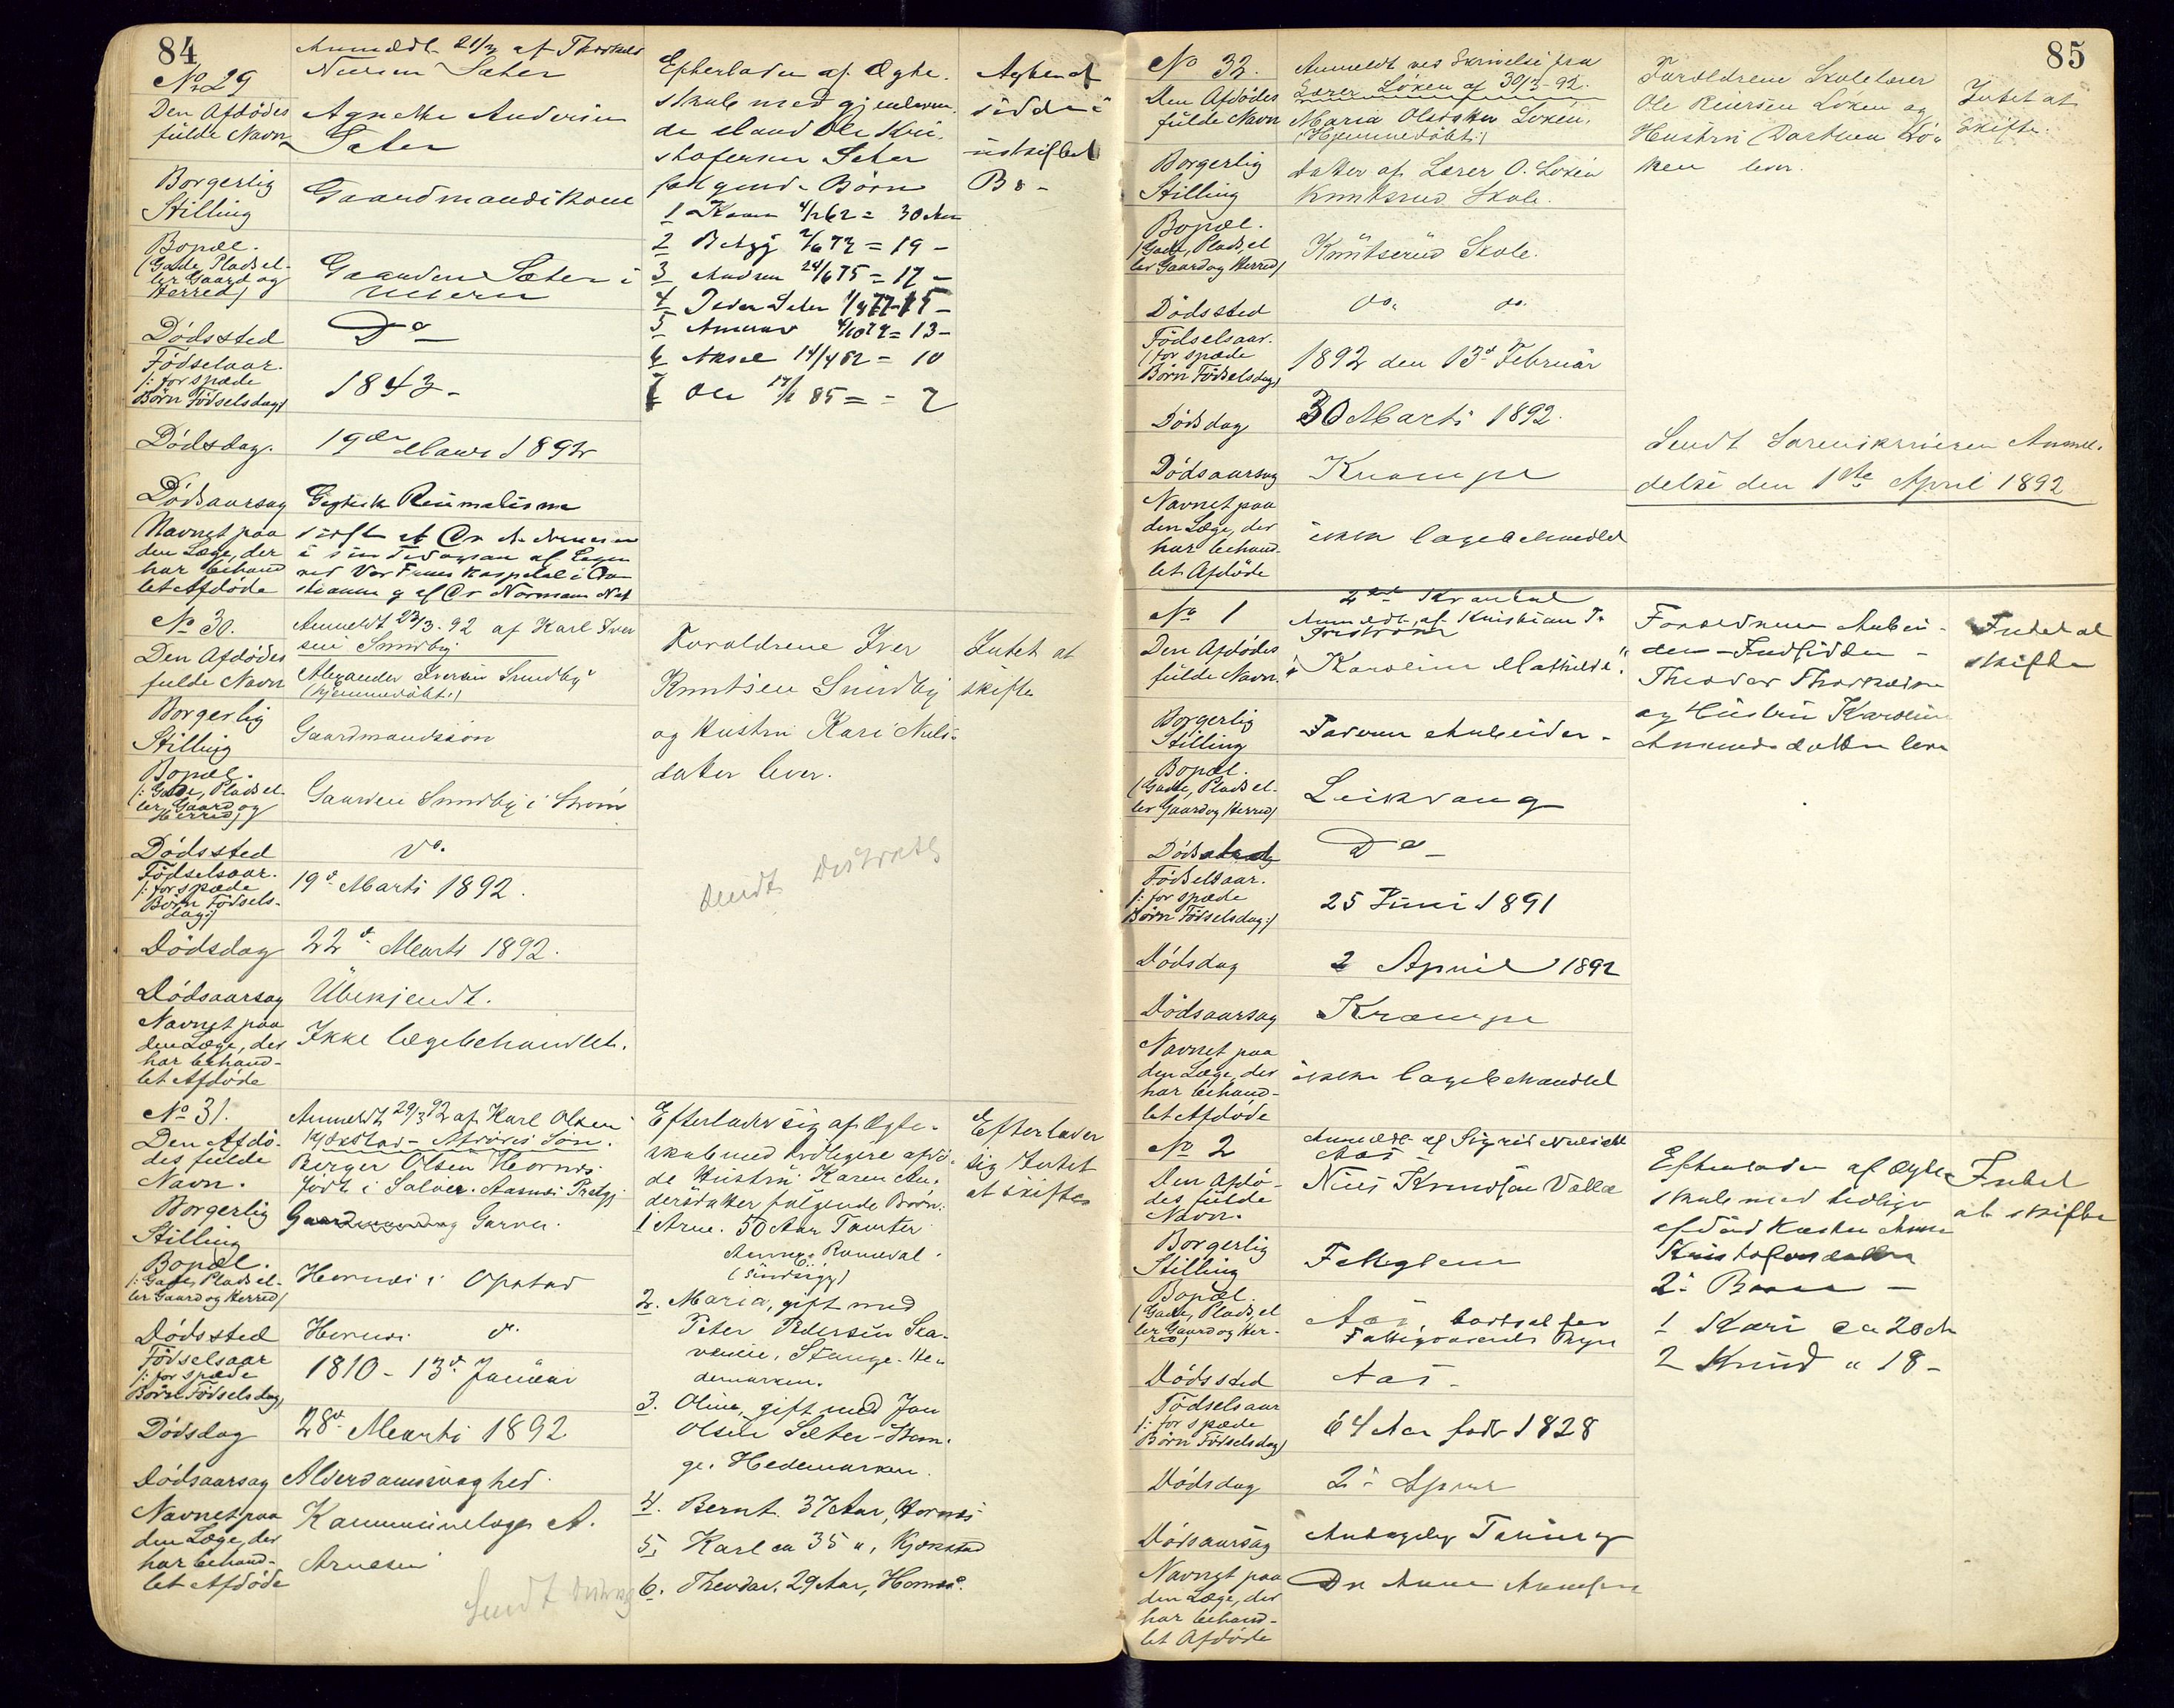 84
No 29
Anmeldt 21/3 af
Sæter
Den Afdödes
fulde Navn
Agnethe Andersen
Sæter
Borgerlig
Stilling
Gaardmandskone
Bopæl.
(Gade, Plads el-
ler Gaard og
Herred)
Gaarden Sæter i
Dödssted
Do
Födselaar.
(: for spæde
Börn Födselsdag)
1843 -
Dödsdag.
19de Marts 1892
Dödsaarsag
Gigtisk Reumatisme
Navnet paa
den Læge, der
har behand
let Afdöde
ved Vor Frues Hospital i
af Dr Normann
Efterlader af Ægte-
skab med gjenleven-
de Mand Ole Kri-
stofersen Sæter
fölgende Börn
1 Karen 4/2 62 = 30 Aar
2 = 19 -
3 24/6 75 = 17 -
4 Peder Sæter
5 = 13 -
6 Aksel 14/4 82 = 10
7 Ole 85 = 7
sidde i
uskiftet
Bo -
No 30.
Anmeldt 22/3. 92 af Karl Iver
sen Sundby
Den Afdödes
fulde Navn
Alexander Iversen Sundby
(hjemmedöbt:)
Borgerlig
Stilling
Gaardmandssön
Bopæl.
(: Gade, Plads el-
ler Gaard og
Herred)
Gaarden Sundby i Ström
Dödssted
do.
Födselsaar.
(: for spæde
Börn Födsels-
dag:)
19d Marts 1892.
Dödsdag
22d Marts 1892.
Dödsaarsag
Ubekjendt.
Navnet paa
den Læge, der
har behand-
let Afdöde
Ikke lægebehandlet.
Forældrene Iver
Knutsen Sundby
og Hustru Kari Nils-
datter lever.
Intet at
skifte
Sendt
No 31.
Anmeldt 29/3 92 af Karl Olsen
Kjokstad - Afdödes Sön.
Den Afdö-
des fulde
Navn.
Berger Olsen Hornæs
födt i Solöer. Aasnæs Prstgj
Borgerlig
Stilling
Garver.
Bopæl.
(: Gade, Plads el-
ler Gaard og Herred)
Hornæs i Opstad
Dödssted
Hornæs do
Födselsaar
(: for spæde
Börn Födselsdag)
1810 - 13d Januar
Dödsdag
28d Marts 1892
Dödsaarsag
Alderdomssvaghed.
Navnet paa
den Læge, der
har behand-
let Afdöde
Kommunelæge A.
Arnesen
Sendt
Efterlader sig af Ægte-
skab med tidligere afdö-
de Hustru Karen An-
dersdatter fölgende Börn:
1 Arne. 50 Aar Tomter
(sindssyg)
2. Maria, gift med
Peter Pedersen Ska-
Stange. He-
demarken.
3. Oline, gift med Jan
Olsen Sæter - Stan-
ge. Hedemarken.
4. Bernt. 37 Aar, Hornæs
5. Karl ca 35 ", Kjokstad
6. Theodor. 29 Aar, Hornæs.
Efterlader
sig Intet
at skifte
85
No 32.
Anmeldt ved Skrivelse fra
Lærer Löken af 30/3-92.
Den Afdödes
fulde Navn
Maria Olsdatter Löken,
(Hjemmedöbt:)
Borgerlig
Stilling
Datter af Lærer O. Löken
Knutsrud Skole.
Bopæl.
(Gade, Plads el
ler Gaard og Herred)
Knutsrud Skole.
Dödssted
do. do.
Födselsaar.
(for spæde
Börn Födselsdag)
1892 den 13d Februar
Dödsdag
30 Marts 1892.
Dödsaarsag
Krampe
Navnet paa
den Læge, der
har behand-
let Afdöde
ikke lægebehandlet
Forældrene Skolelærer
Ole Reiersen Löken og
Hustru Dorthea Lö-
ken lever.
Intet at
skifte.
Sendt Sorenskriveren Anmel-
delse den 1ste April 1892
No 1
2det Kvartal
Anmeldt af Kristian T.
Den Afdödes
fulde Navn.
Karoline Mathilde
Borgerlig
Stilling
Faderen Arbeider -
Bopæl.
(Gade, Plads el-
ler Gaard og Herred)
Leikvang
Do -
Födselsaar.
(: for spæde
Börn Födselsdag:)
25 Juni 1891
Dödsdag
2 April 1892
Dödsaarsag
Krampe
Navnet paa
den Læge, der
har behand-
let Afdöde
ikke lægebehandlet
Forældrene Arbei-
der - Indsidder -
Theodor
og Hustru Karoline
Amundsdatter leve
Intet at
skifte
No 2
Anmeldt af Sigrid
Aas
Den Afdö-
des fulde
Navn.
Niels Knudsen
Borgerlig
Stilling
Fattiglem
Bopæl.
(Gade, Plads el
ler Gaard og Her-
red)
Aas, bortsat for
Fattigvæsenets Regn
Dödssted
Aas -
Födselsaar
(: for spæde
Börn Födselsdag)
64 Aar födt 1828
Dödsdag
2 April
Dödsaarsag
Antagelig Tæring
Navnet paa
den Læge, der
har behand-
let Afdöde
Dr
Efterlader af Ægte
skab med tidligere
afdöd
Kristofersdatter
2 Börn -
1 Kari ca 20 Ar
2 Knud " 18 -
Intet
at skifte